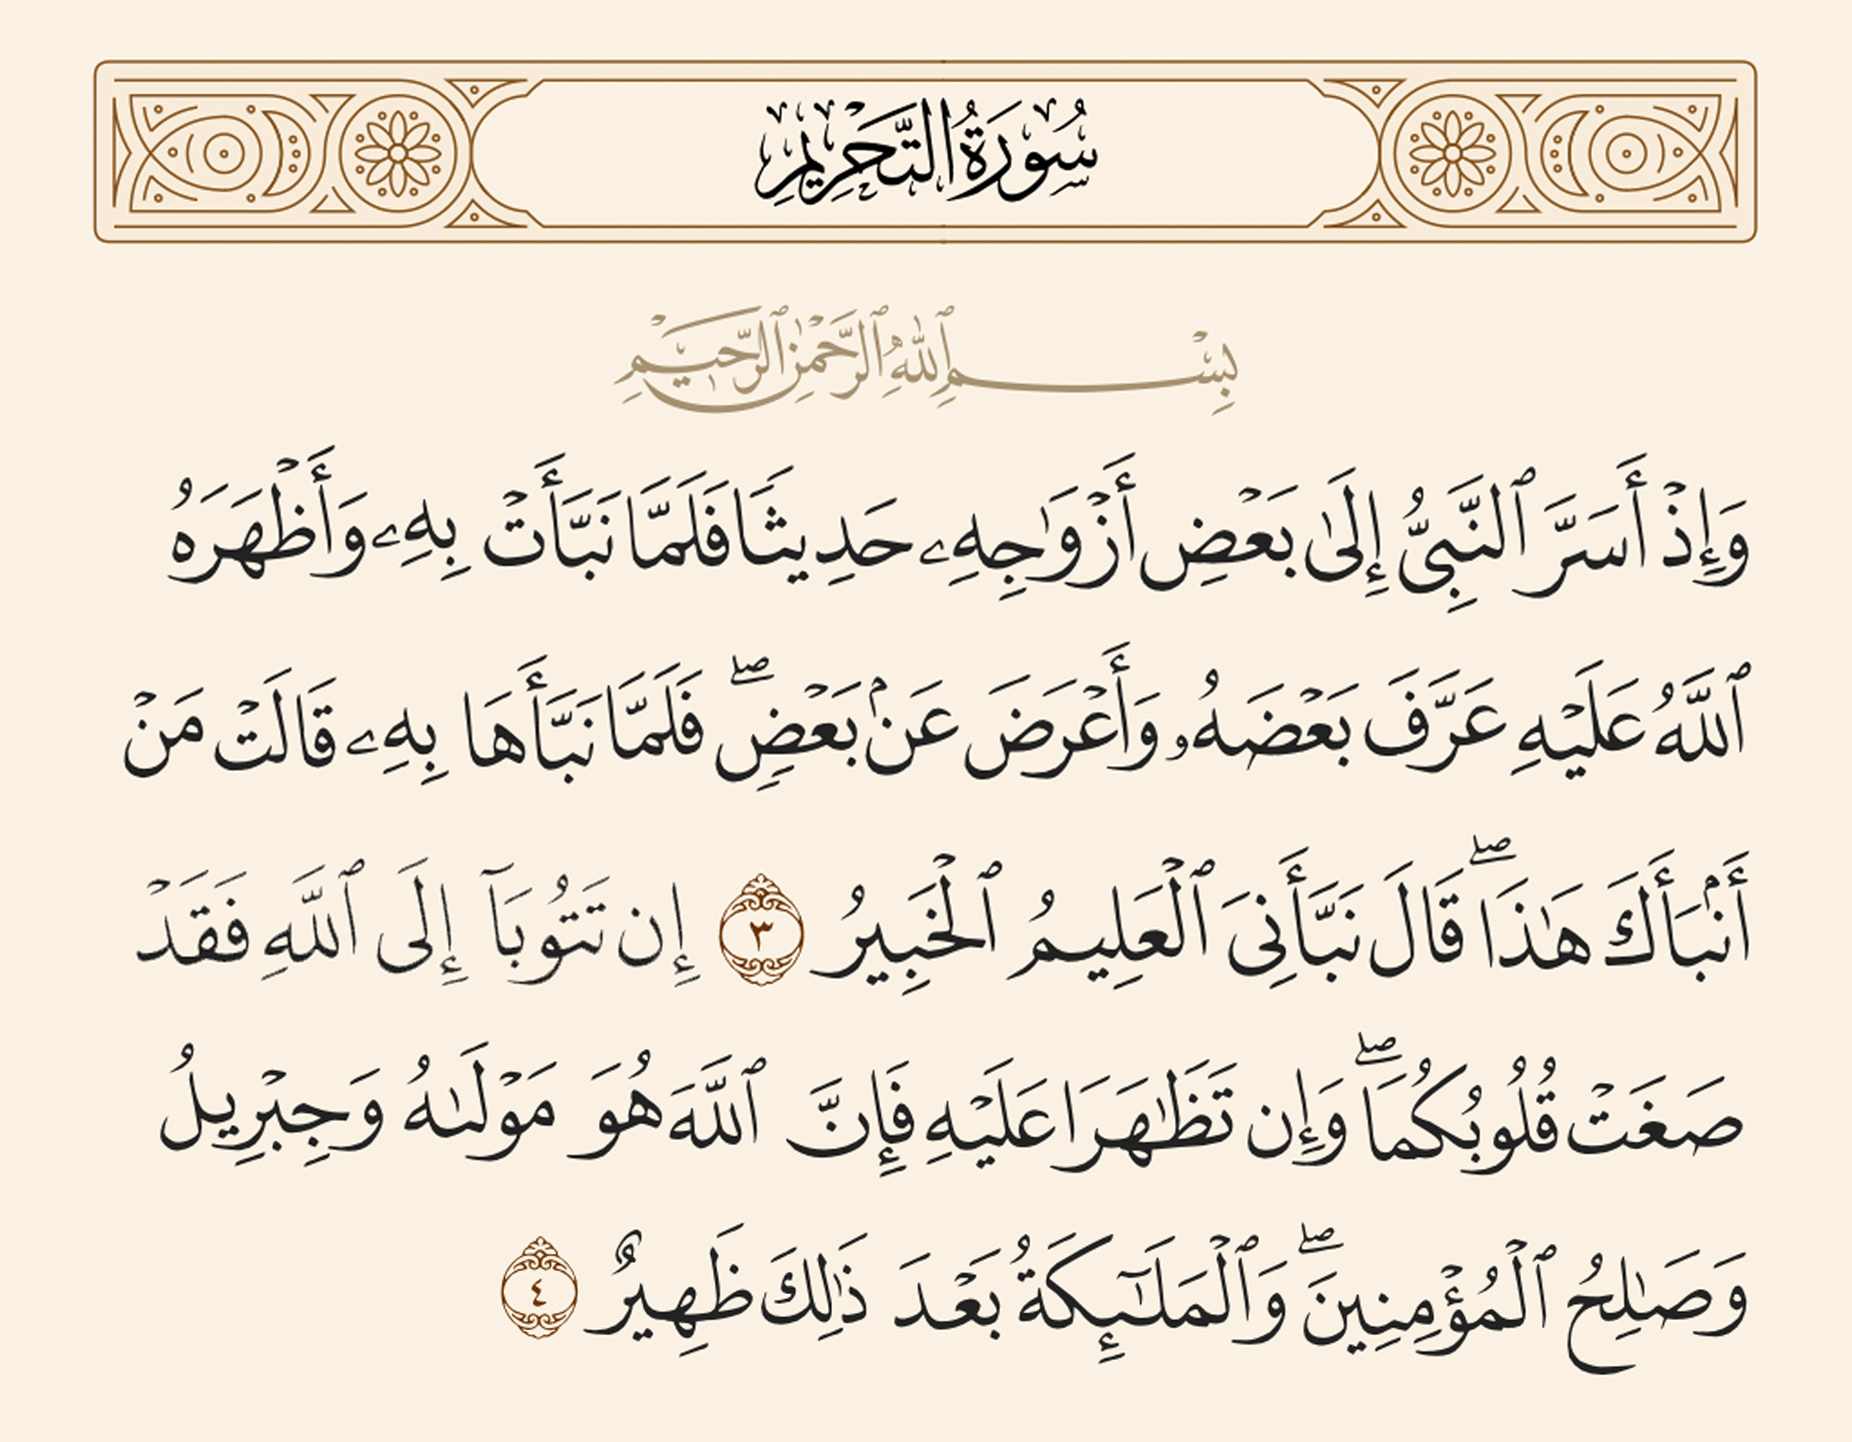 سُورَةُ التَّحْرِيمِ
بِسْمِ ٱللَّهِ ٱلرَّحْمَٰنِ ٱلرَّحِيمِ
وَإِذْ أَسَرَّ ٱلنَّبِىُّ إِلَىٰ بَعْضِ أَزْوَٰجِهِۦ حَدِيثًا فَلَمَّا نَبَّأَتْ بِهِۦ وَأَظْهَرَهُ
ٱللَّهُ عَلَيْهِ عَرَّفَ بَعْضَهُۥ وَأَعْرَضَ عَنۢ بَعْضٍۖ فَلَمَّا نَبَّأَهَا بِهِۦ قَالَتْ مَنْ
أَنۢبَأَكَ هَٰذَاۖ قَالَ نَبَّأَنِىَ ٱلْعَلِيمُ ٱلْخَبِيرُ ٣ إِن تَتُوبَآ إِلَى ٱللَّهِ فَقَدْ
صَغَتْ قُلُوبُكُمَاۖ وَإِن تَظَٰهَرَا عَلَيْهِ فَإِنَّ ٱللَّهَ هُوَ مَوْلَىٰهُ وَجِبْرِيلُ
وَصَٰلِحُ ٱلْمُؤْمِنِينَۖ وَٱلْمَلَٰٓئِكَةُ بَعْدَ ذَٰلِكَ ظَهِيرٌ ٤